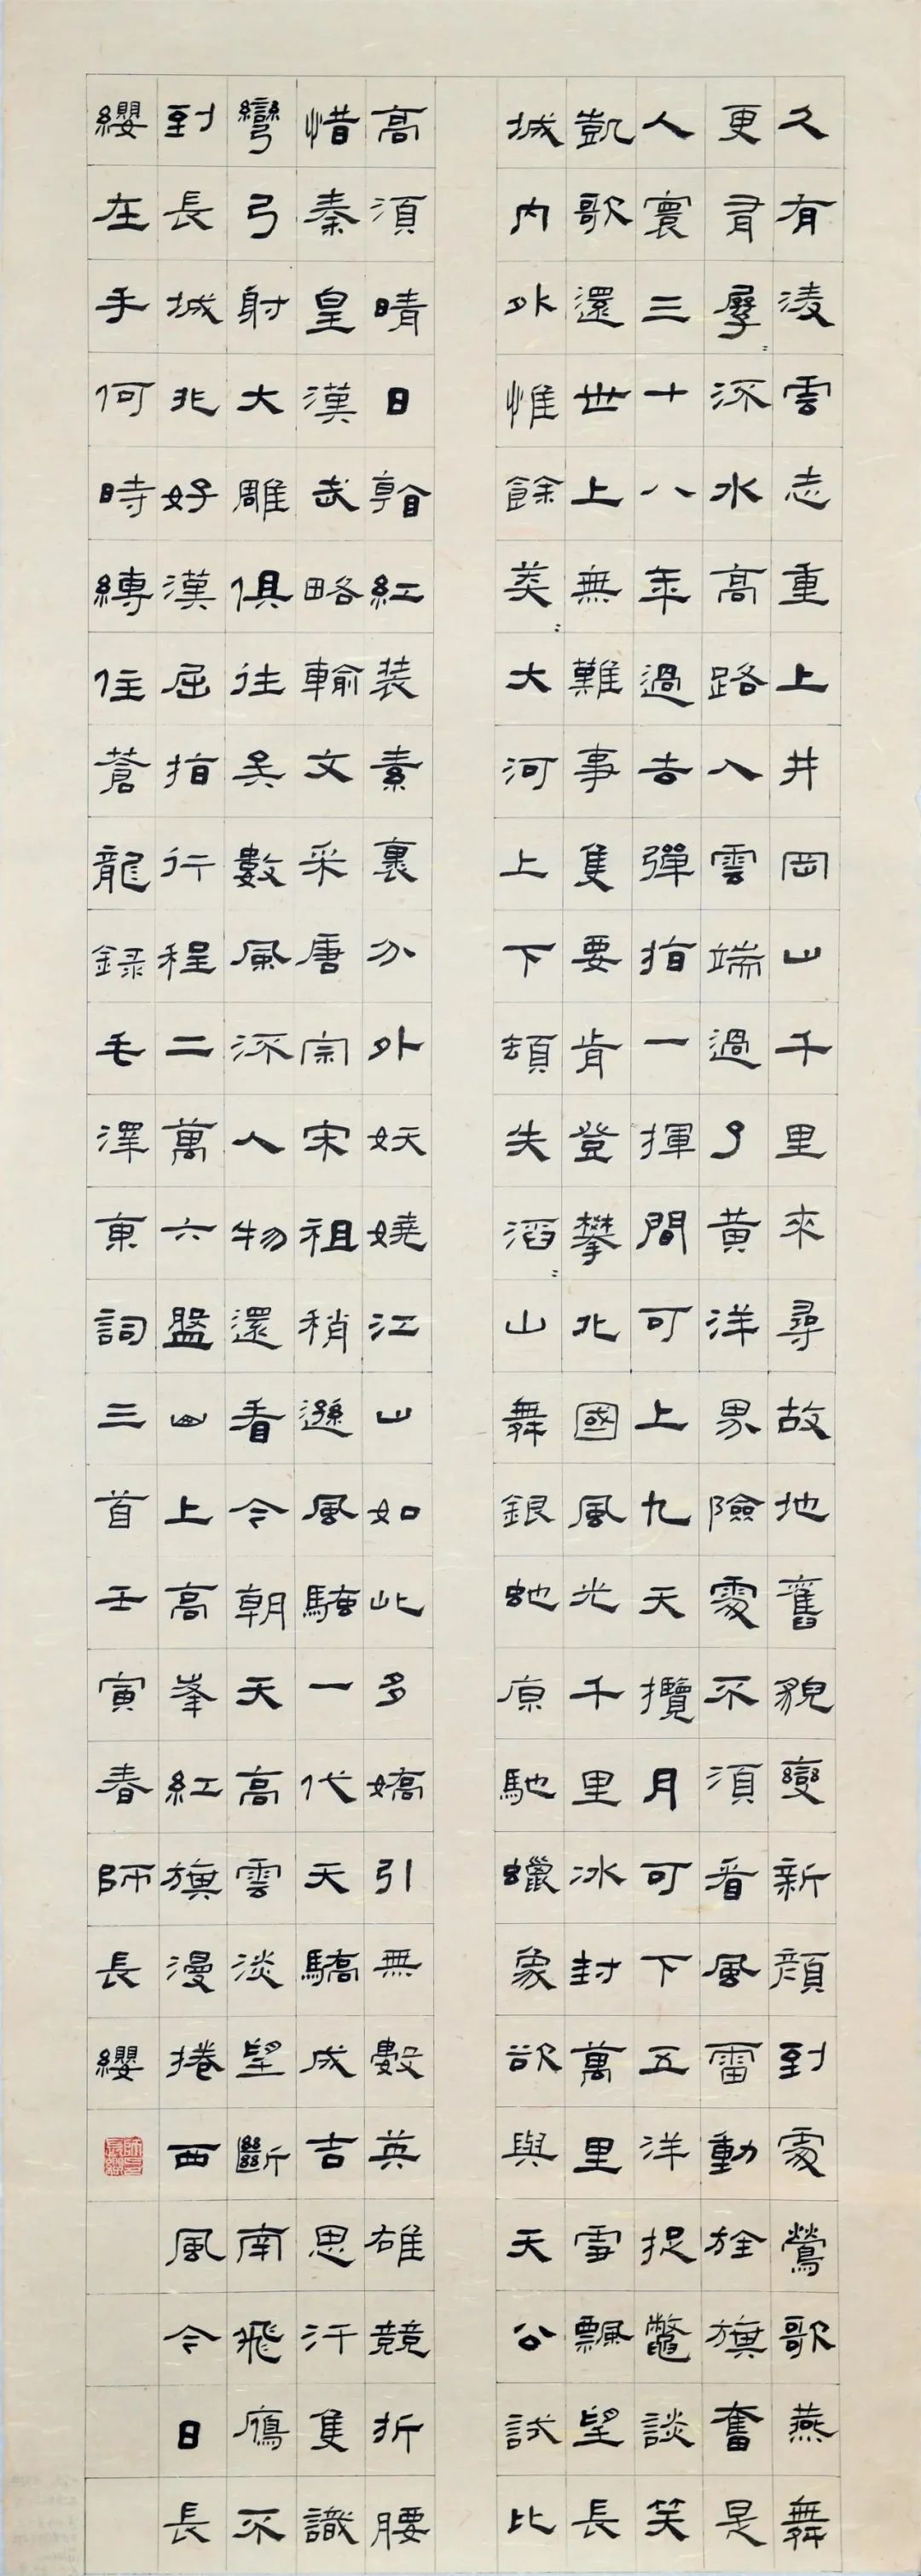 久有淩雲志重上井岡山千里來尋故地舊貌變新顏到處鶯歌燕舞
更有孱〻流水高路入雲端過了黃洋界險處不須看風雷動旌旗奮是
人寰三十八年過去彈指一揮間可上九天攬月可下五洋捉鱉談笑
凱歌還世上無難事隻要肯登攀北國風光千里冰封萬里雪飄望長
城內外惟餘莽〻大河上下頓失滔〻山舞銀蛇原馳蠟象欲與天公試比
高須晴日看紅裝素裹分外妖嬈江山如此多嬌引無數英雄競折腰
惜秦皇漢武略輸文采唐宗宋祖稍遜風騷一代天驕成吉思汗隻識
彎弓射大雕俱往矣數風流人物還看今朝天高雲淡望斷南飛鴈不
到長城非好漢屈指行程二萬六盤山上高峯紅旗漫捲西風今日長
纓在手何時縛住蒼龍錄毛澤東詞三首壬寅春師長纓